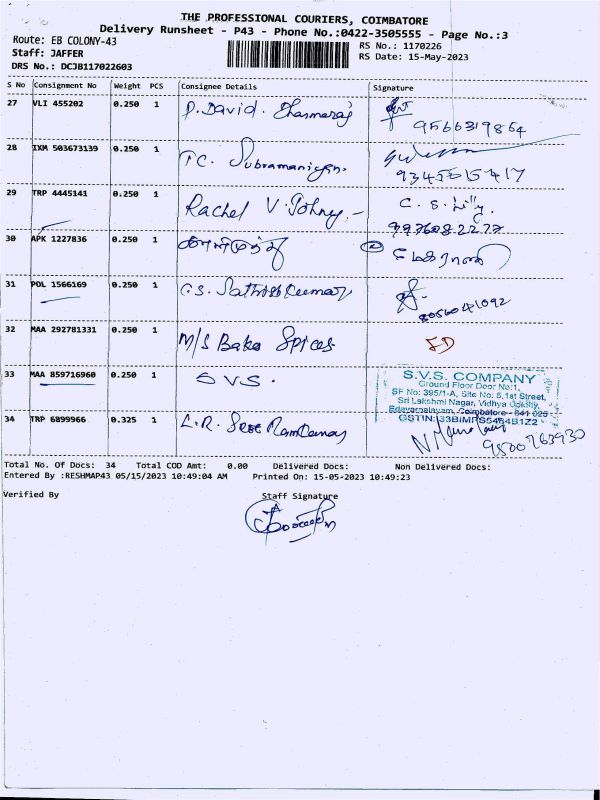 THE PROFESSIONAL COURIERS, COIMBATORE
Delivery Runsheet - P43 - Phone No.:0422-3505555 - Page No.:3
Route: EB COLONY-43
RS No.: 1170226
Staff: JAFFER
RS Date: 15-May-2023
DRS No.: DCJB117022603
S No Consignment No Weight PCS Consignee Details Signature
27 VLI 455202 0.250 1 P. David. Dharmaraj
9566319864
28 IXM 503673139 0.250 1 T.C. Subramaniyan.
9345615417
29 TRP 4445141 0.250 1 Rachel V Johny. C. S. Lilly.
30 APK 1227836 0.250 1
31 POL 1566169 0.250 1 C.S. Sathish Kumar
8056041092
32 MAA 292781331 0.250 1 M/S Bake Spices
33 MAA 859716960 0.250 1 S V S.
S.V.S. COMPANY
Ground Floor Door No:1,
SF No: 395/1-A, Site No: 5,1st Street,
Sri Lakshmi Nagar, Vidhya Colony,
Edayarpalayam, Coimbatore - 641 025
34 TRP 6899966 0.325 1 L.R. Sree Ramdamay
9500763930
Total No. Of Docs: 34 Total COD Amt: 0.00 Delivered Docs: Non Delivered Docs:
Entered By :RESHMAP43 05/15/2023 10:49:04 AM Printed On: 15-05-2023 10:49:23
Verified By Staff Signature